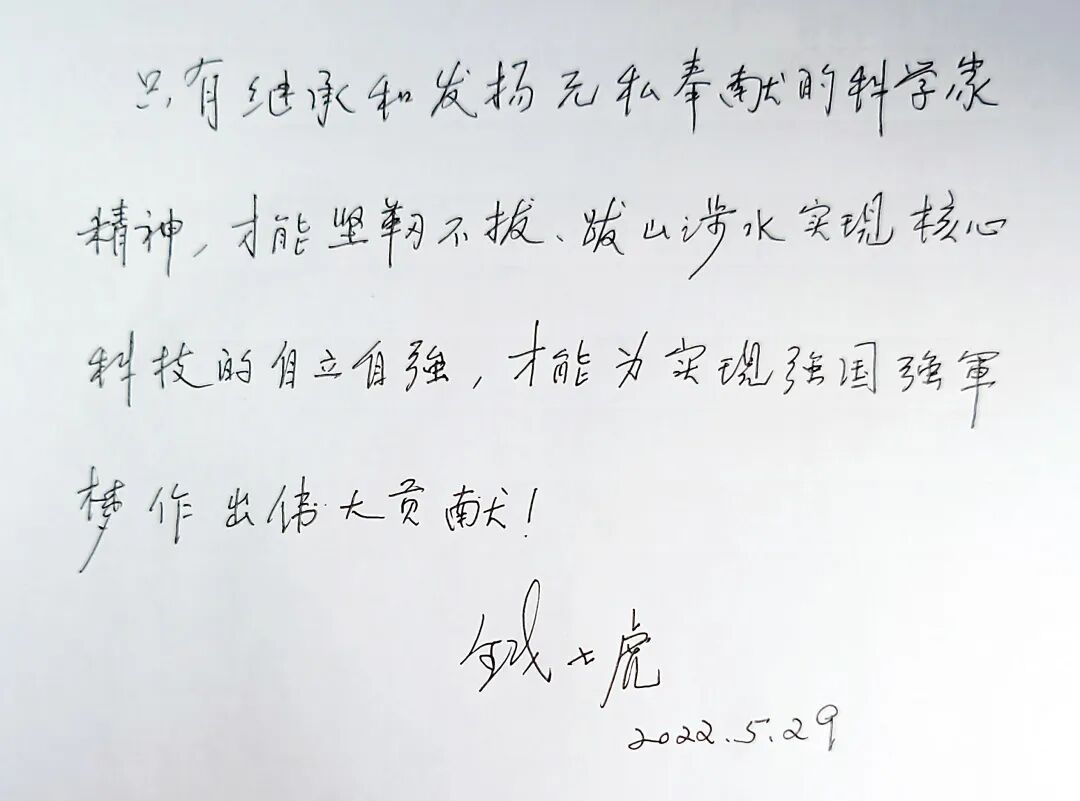 只有继承和发扬无私奉献的科学家
精神，才能坚韧不拔、跋山涉水实现核心
科技的自立自强，才能为实现强国强軍
梦作出伟大贡献！
钱七虎
2022.5.29